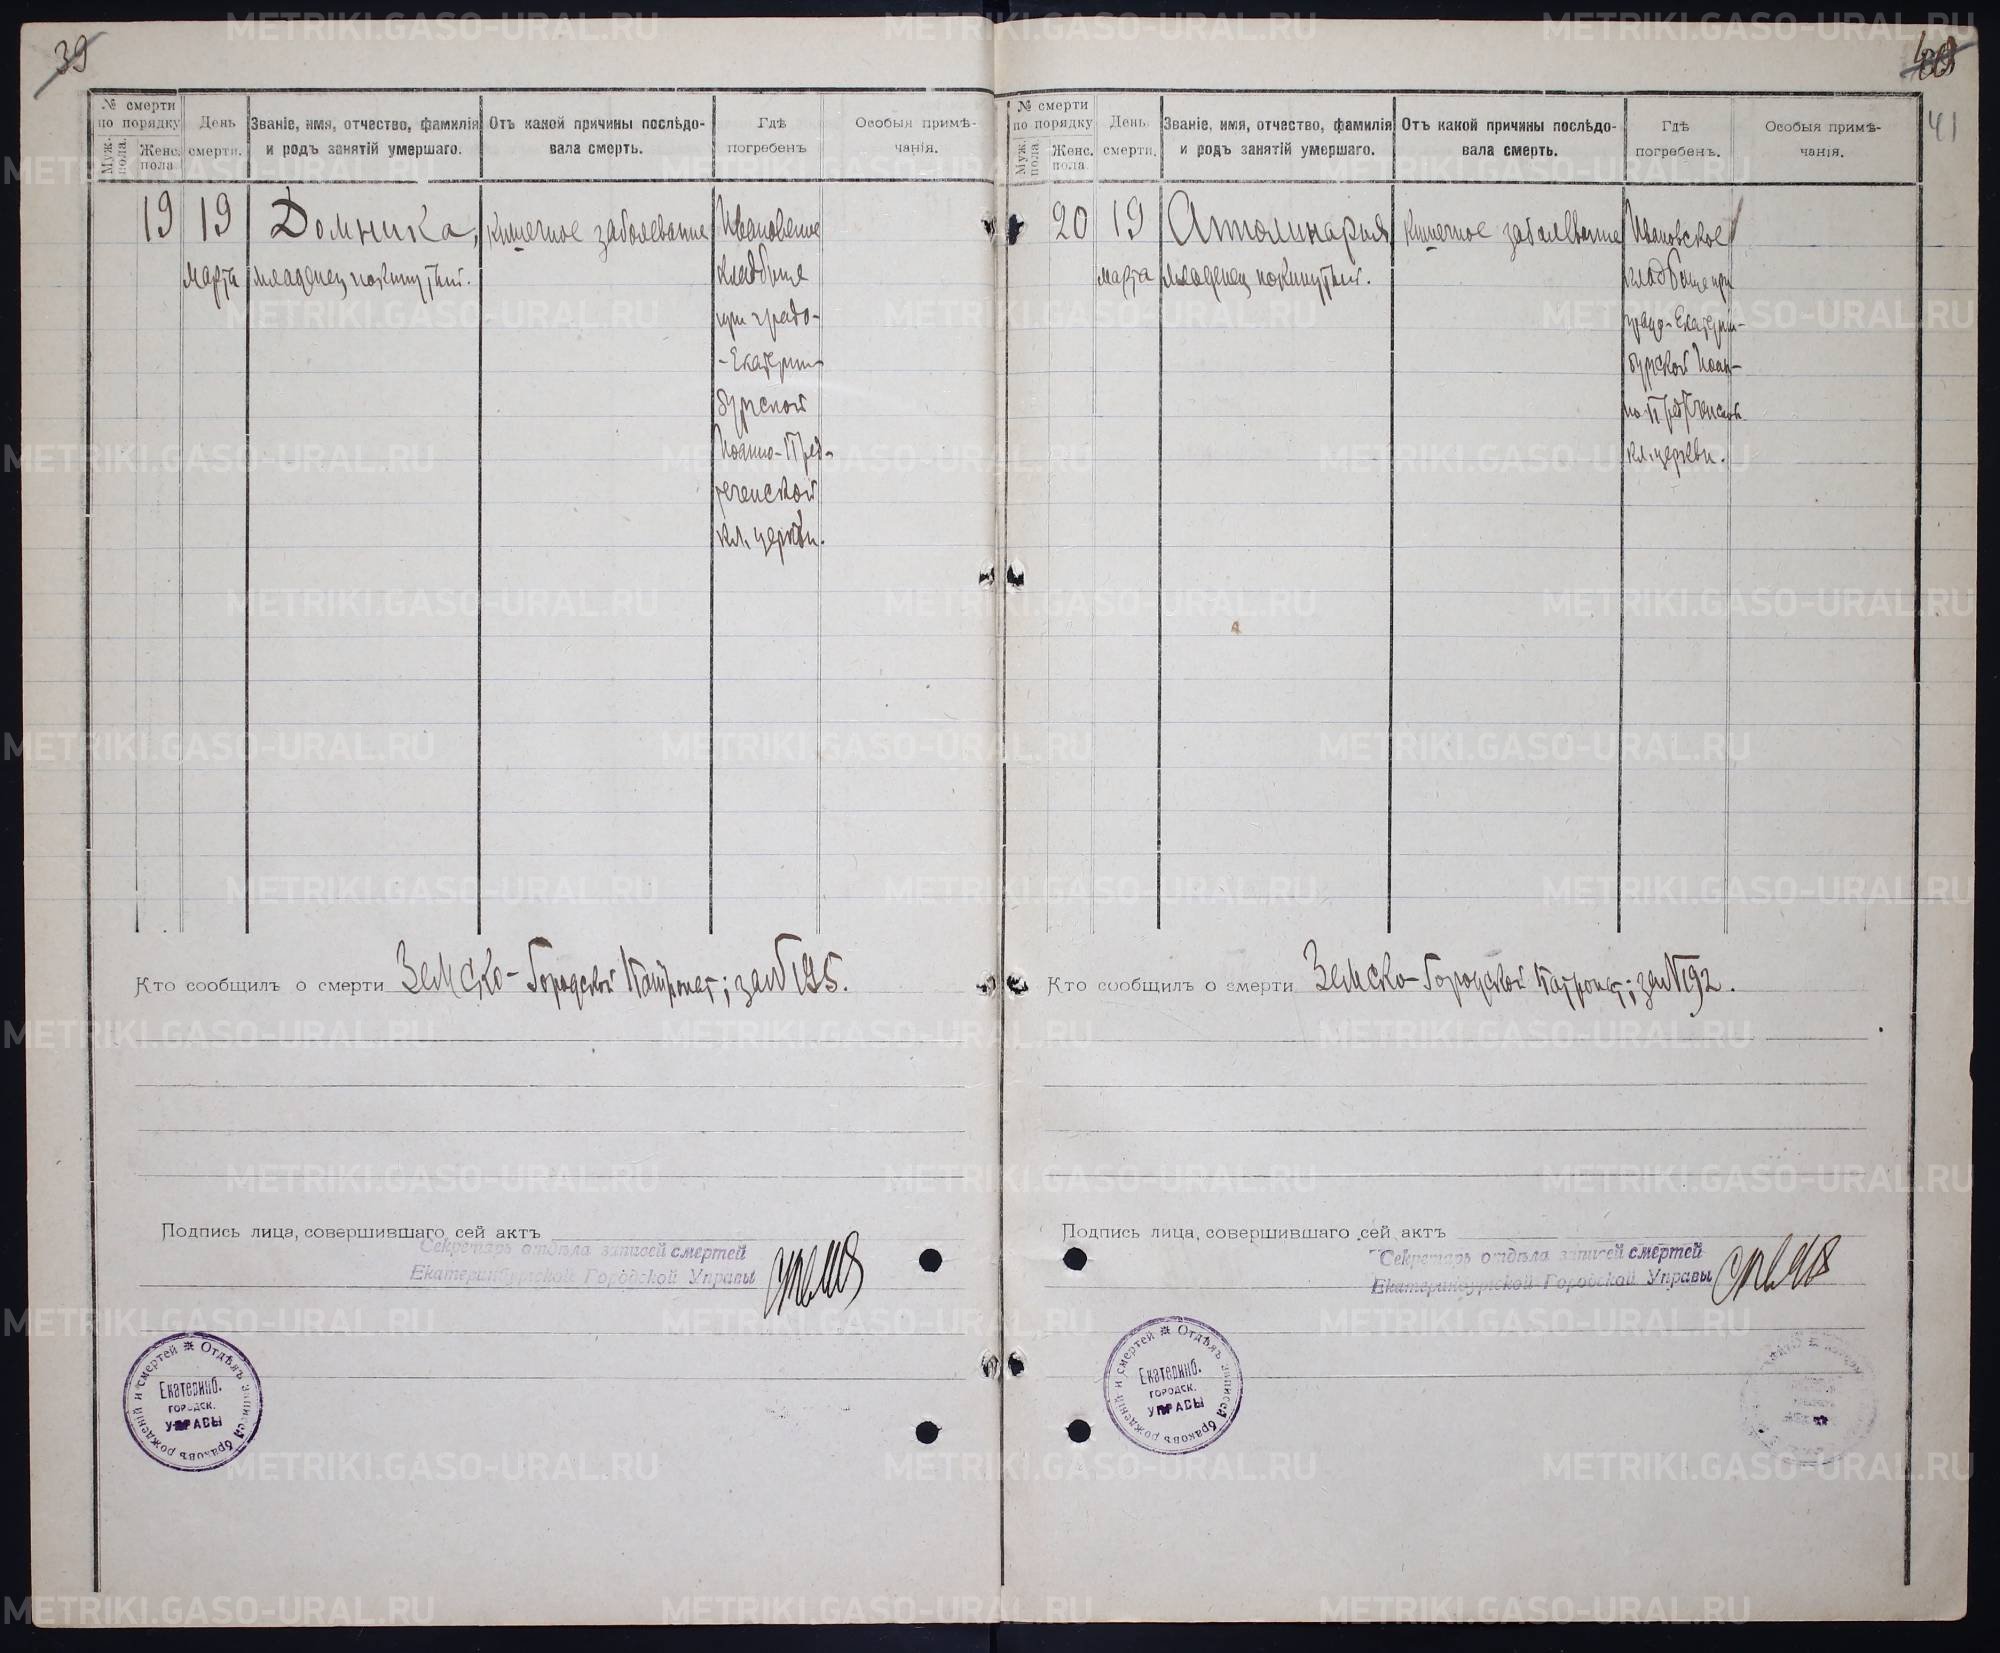 39
№ смерти по порядку
Муж. пола.
Женс. пола
День смерти.
Званіе, имя, отчество, фамилія и родъ занятій умершаго.
Отъ какой причины послѣдовала смерть.
Гдѣ погребенъ
Особыя примѣчанія.
19
19
марта
Домника,
младенец покинутый.
кишечное заболевание
Ивановское
кладбище
при градо-
-Екатерин-
бургской
Иоанно-Пред-
теченской
кл. церкви.
Кто сообщилъ о смерти Земско-Городской Патронат; за № 195.
Подпись лица, совершившаго сей актъ
Секретарь отдѣла записей смертей
Екатеринбургской Городской Управы
Отдѣлъ записей браковъ рожденій и смертей
Екатеринб.
городск.
управы
41
№ смерти по порядку
Муж. пола.
Женс. пола.
День смерти.
Званіе, имя, отчество, фамилія и родъ занятій умершаго.
Отъ какой причины послѣдовала смерть.
Гдѣ погребенъ.
Особыя примѣчанія.
20
19
марта
Апполинария
младенец покинутый.
Кишечное заболевание
Ивановское
кладбище при
градо-Екатерин-
бургской Иоан-
но-Предтеченской
кл. церкви.
Кто сообщилъ о смерти Земско-Городской Патронат; за № 192.
Подпись лица, совершившаго сей актъ
Секретарь отдѣла записей смертей
Екатеринбургской Городской Управы
Отдѣлъ записей браковъ рожденій и смертей
Екатеринб.
городск.
управы
METRIKI.GASO-URAL.RU